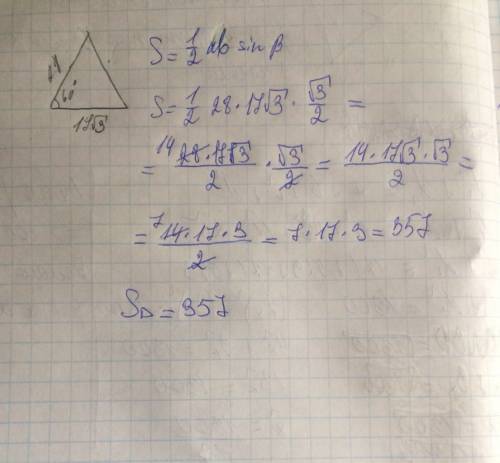 28
60°
17√3
S = 1/2 ab sin β
S = 1/2 28 · 17√3 · √3/2 =
= 14 28 · 17√3 / 2 · √3/2 = 14 · 17√3 · √3 / 2 =
= 7 14 · 17 · 3 / 2 = 7 · 17 · 3 = 357
S△ = 357